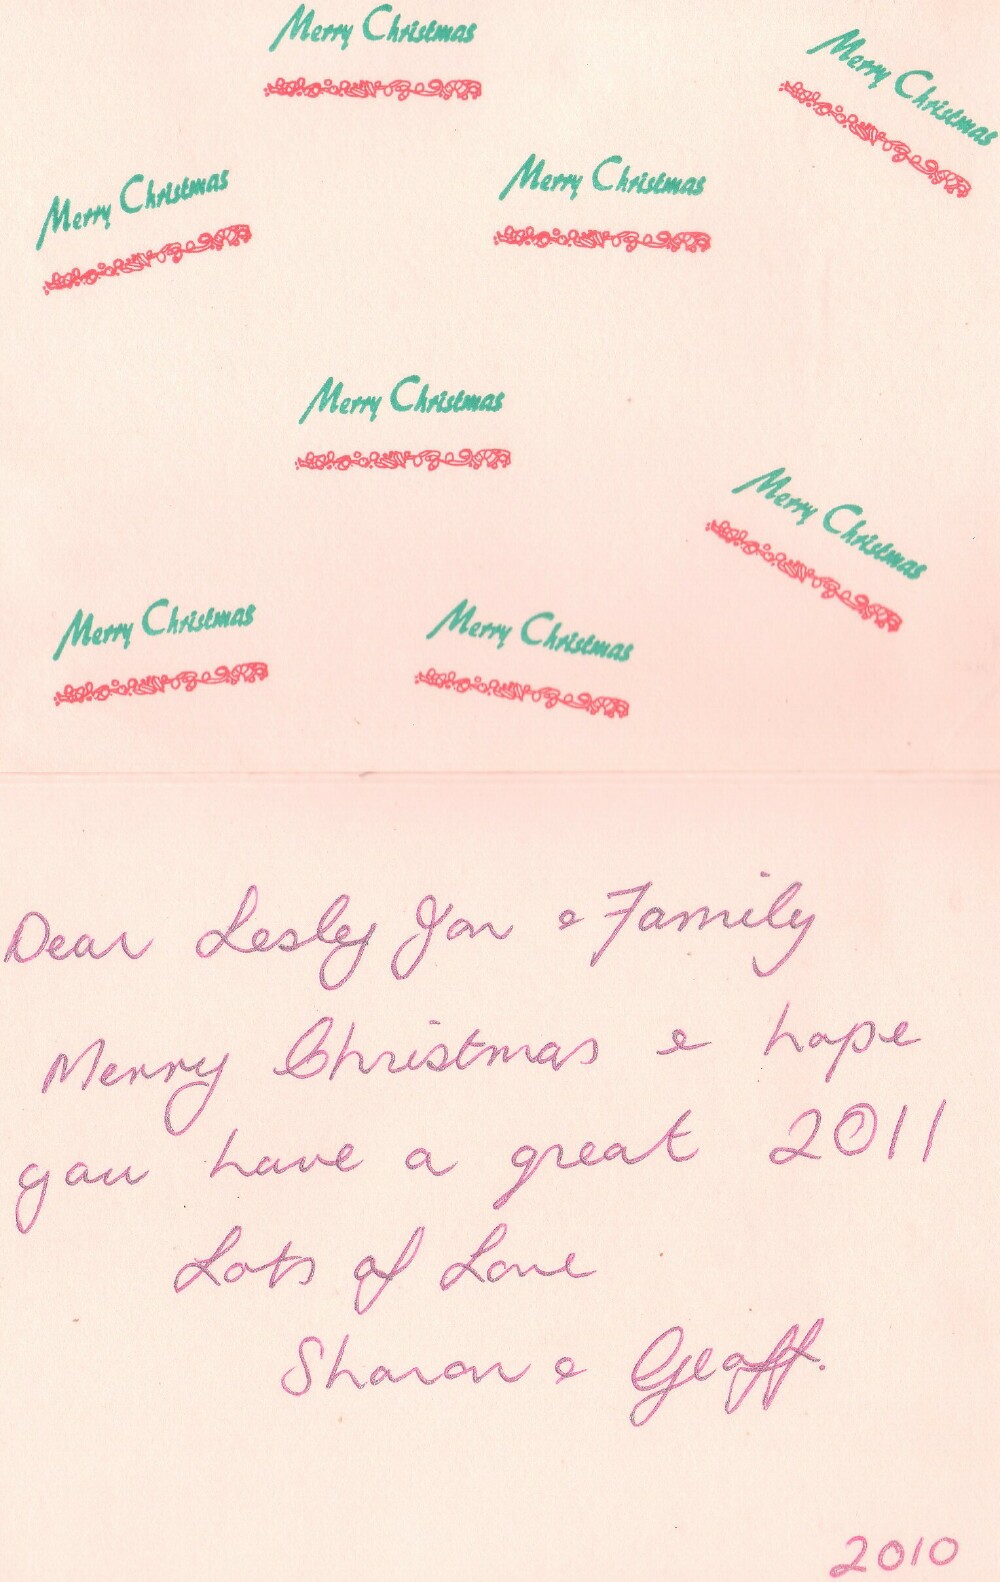 Merry Christmas
Merry Christmas
Merry Christmas
Merry Christmas
Merry Christmas
Merry Christmas
Merry Christmas
Merry Christmas
Dear Lesley Jon & Family
Merry Christmas & hope
you have a great 2011
Lots of Love
Sharon & Geoff.
2010